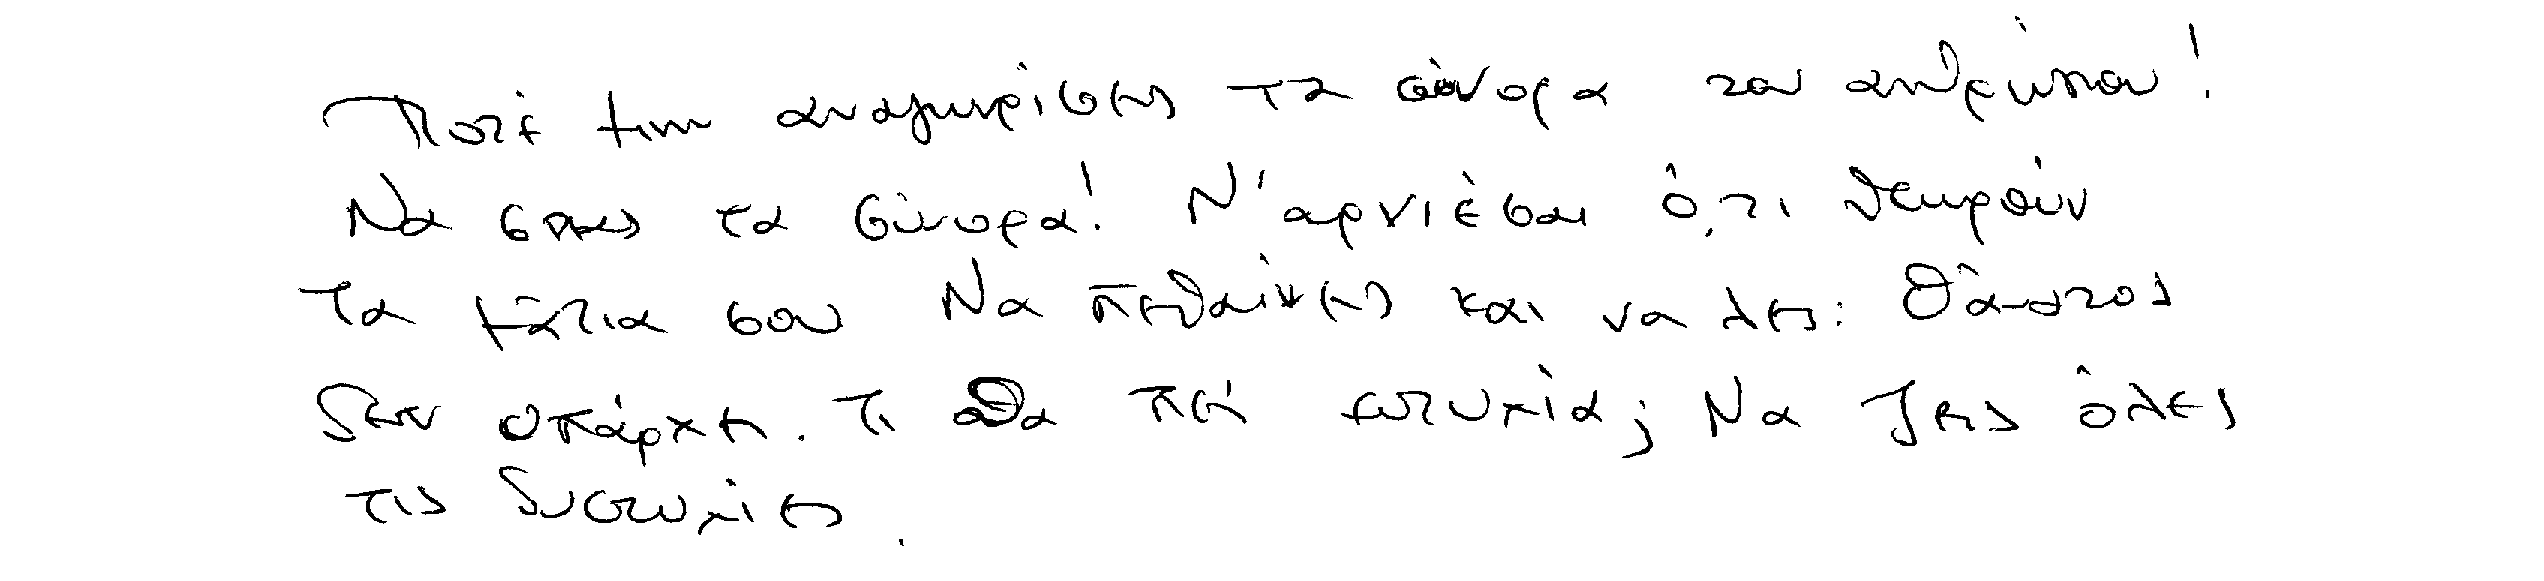 Ποτέ μην αναγνωρίσεις τα σύνορα του ανθρώπου!
Να σπας τα σύνορα! Ν'αρνιέσαι ό,τι θεωρούν
τα μάτια σου Να πεθαίνεις και να λες: Θάνατος
δεν υπάρχει. Τι θα πει ευτυχία; Να ζεις όλες
τις δυστυχίες.